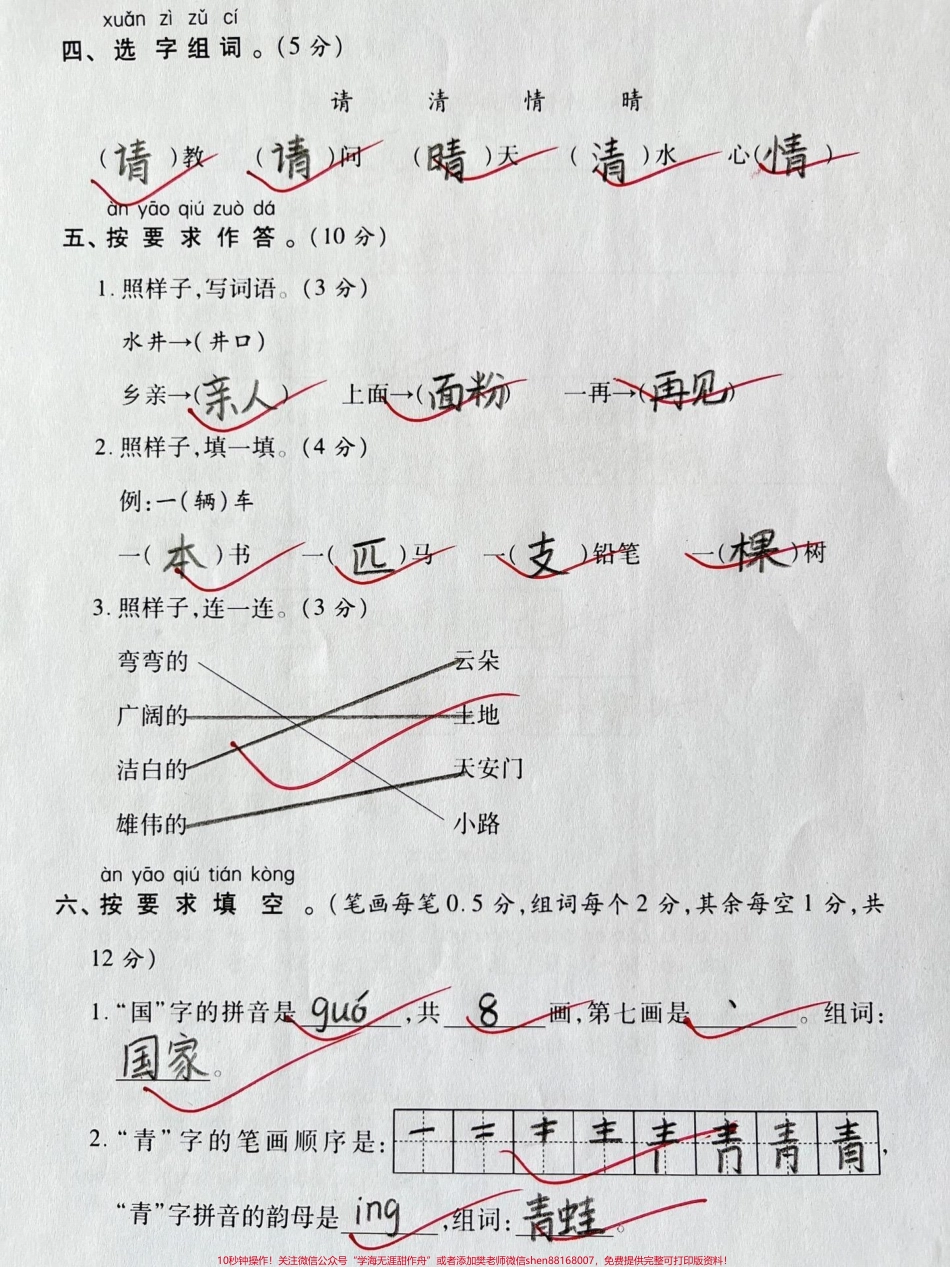 xuǎn zì zǔ cí
四、选字组词。(5分)
请 清 情 晴
(请)教 (请)问 (晴)天 (清)水 心(情)
àn yāo qiú zuò dá
五、按要求作答。(10分)
1.照样子,写词语。(3分)
水井→(井口)
乡亲→(亲人) 上面→(面粉) 一再→(再见)
2.照样子,填一填。(4分)
例:一(辆)车
一(本)书 一(匹)马 一(支)铅笔 一(棵)树
3.照样子,连一连。(3分)
弯弯的 云朵
广阔的 土地
洁白的 天安门
雄伟的 小路
àn yāo qiú tián kòng
六、按要求填空。(笔画每笔0.5分,组词每个2分,其余每空1分,共
12分)
1.“国”字的拼音是guó,共8画,第七画是丶。组词:
国家。
2.“青”字的笔画顺序是: 青,
“青”字拼音的韵母是ing,组词:青蛙。
10秒钟操作!关注微信公众号“学海无涯甜作舟”或者添加樊老师微信shen88168007,免费提供完整可打印版资料!